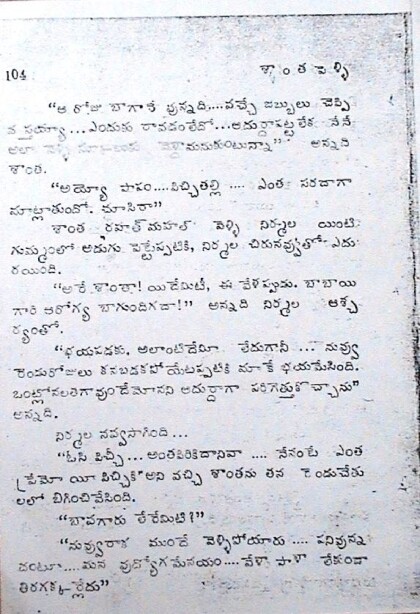 104
శాంత పెళ్ళి
“ఆ రోజు బాగానే వున్నది....వచ్చే జబ్బులు చెప్పి
వస్తయ్యా...ఎందుకు రావడంలేదో...అదుర్దాపట్టలేక నేనే
అలా వెళ్ళి వెళ్దామనుకుంటున్నా” అన్నది
శాంత.
“అయ్యో పాపం....పిచ్చితల్లి .... ఎంత సరదాగా
మాట్లాతుందో. చూసిరా”
శాంత రహత్‌మహల్ వెళ్ళి నిర్మల యింటి
గుమ్మంలో అడుగు పెట్టేప్పటికి, నిర్మల చిరునవ్వుతో ఎదు
రయింది.
“అరే శాంతా! యిదేమిటి, ఈ వేళప్పుడు. బాబాయి
గారి ఆరోగ్య బాగుందిగదా!” అన్నది నిర్మల ఆశ్చ
ర్యంతో.
“భయపడకు, అలాంటిదేమీ లేదుగానీ ... నువ్వు
రెండురోజులు కనబడకపోయేటప్పటికి మాకే భయమేసింది.
ఒంట్లోనలతగావుందేమోనని అదుర్దాగా పరిగెత్తుకొచ్చాను”
అన్నది.
నిర్మల నవ్వసాగింది...
“ఓసి పిచ్చీ... అంతకిరికిదానివా .... నేనంటే ఎంత
ప్రేమో యీ పిచ్చికి” అని వచ్చి శాంతను తన రెండుచేతు
లలో బిగించివేసింది.
“బావగారు లేరేమిటి?”
“నువ్వురాక ముందే వెళ్ళిపోయారు .... పనివున్న
దంటూ....మన వుద్యోగమేనయం....వేళా పాళా లేకుండా
తిరగక్కర్లేదు”